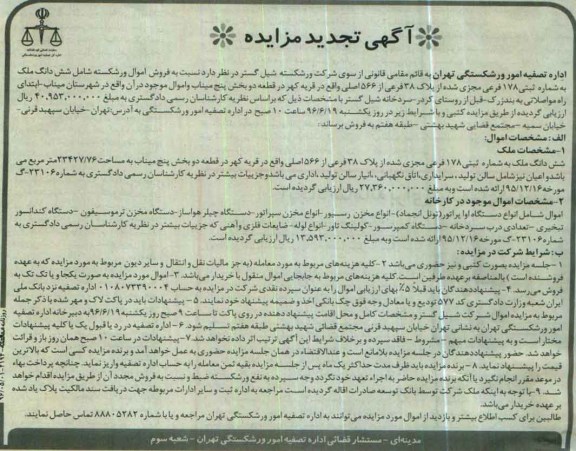 آگهی تجدید مزایده
اداره تصفیه امور ورشکستگی تهران به قائم مقامی قانونی از سوی شرکت ورشکسته شیل گستر در نظر دارد نسبت به فروش اموال ورشکسته شامل شش دانگ ملک
به شماره ثبتی ۱۷۸ فرعی مجزی شده از پلاک ۳۸ فرعی از ۵۶۶ اصلی واقع در قریه کهر در قطعه دو بخش پنج میناب واموال موجود در آن واقع در شهرستان میناب-ابتدای
راه مواصلاتی به بندر کرک-قبل از روستای کردر-سردخانه شیل گستر با مشخصات ذیل که براساس نظریه کارشناسان رسمی دادگستری به مبلغ ۴۰,۹۵۳,۰۰۰,۰۰۰ ریال
ارزیابی گردیده از طریق مزایده کتبی و با شرایط زیر در روز یکشنبه ۹۶/۶/۱۹ ساعت ۱۰ صبح در اداره تصفیه امور ورشکستگی به آدرس:تهران-خیابان سپهبد قرنی-
خیابان سمیه-مجتمع قضایی شهید بهشتی-طبقه هفتم به فروش برساند:
الف: مشخصات اموال:
۱-مشخصات ملک
شش دانگ ملک به شماره ثبتی ۱۷۸ فرعی مجزی شده از پلاک ۳۸ فرعی از ۵۶۶ اصلی واقع در قریه کهر در قطعه دو بخش پنج میناب به مساحت ۲۳۴۲۷/۷۶ متر مربع می
باشد واعیان نیز شامل سالن تولید، سرایداری، اتاق نگهبانی، انبار سالن تولید، اداری می باشد وجزییات بیشتر در نظریه کارشناسان رسمی دادگستری به شماره ۲۳۱۰۶-گ
مورخه ۹۵/۱۲/۱۶ ارائه شده است وبه مبلغ ۲۷,۳۶۰,۰۰۰,۰۰۰ ریال ارزیابی گردیده است.
۲-مشخصات اموال موجود در کارخانه
اموال شامل انواع دستگاه اواپراتور(تونل انجماد)-انواع مخزن رسیور-انواع مخزن سپراتور-دستگاه چیلر هواساز-دستگاه مخزن ترموسیفون-دستگاه کندانسور
تبخیری-تعدادی درب سردخانه-دستگاه کمپرسور-کولینگ تاور-انواع لوله-ضایعات فلزی وآهنی که جزییات بیشتر در نظریه کارشناسان رسمی دادگستری به
شماره ۲۳۱۰۶-گ مورخه ۹۵/۱۲/۱۶ ارائه شده است وبه مبلغ ۱۳,۵۹۳,۰۰۰,۰۰۰ ریال ارزیابی گردیده است.
ب: شرایط شرکت در مزایده:
۱-جلسه مزایده بصورت کتبی و نیز حضوری می‌باشد ۲-کلیه هزینه‌های مربوط به مورد معامله (به جز مالیات نقل و انتقال و سایر دیون مربوط به مورد مزایده که به عهده
فروشنده است) بالمناصفه برعهده طرفین است. کلیه هزینه‌های مربوط به جابجایی اموال منقول با خریدار می‌باشد. ۳-اموال مورد مزایده به صورت یکجا و یا تک تک به
فروش می‌رسد ۴-پیشنهاددهندگان باید قبلا ۵٪ بهای ارزیابی اموال را به عنوان سپرده نقدی شرکت در مزایده به حساب ۰۱۰۸۰۷۳۳۹۰۰۰۴ اداره تصفیه نزد بانک ملی
ایران شعبه وزارت دادگستری کد ۵۷۷ تودیع و یا معادل وجه فوق چک بانکی اخذ و ضمیمه پیشنهاد خود نمایند. ۵-پیشنهادات باید در پاکت لاک و مهر شده با ذکر جمله
مربوط به مزایده اموال شرکت شیل گستر و مشخصات کامل و محل اقامت پیشنهاد دهنده در روی پاکت تا ساعت ۹ صبح روز یکشنبه ۹۶/۶/۱۹ به دبیرخانه اداره تصفیه
امور ورشکستگی تهران به نشانی تهران خیابان سپهبد قرنی مجتمع قضائی شهید بهشتی طبقه هفتم تسلیم شود. ۶-اداره تصفیه در رد یا قبول یک یا کلیه پیشنهادات
مختار است و به پیشنهادات مبهم-مشروط-فاقد سپرده و برخلاف شرایط این آگهی ترتیب اثر داده نخواهد شد. ۷-پیشنهادات در ساعت ۱۰ صبح همان روز باز و قرائت
خواهد شد. حضور پیشنهاددهندگان در جلسه مزایده بلامانع است و عندالاقتضاء در همان جلسه مزایده حضوری به عمل خواهد آمد و برنده مزایده کسی است که بالاترین
قیمت را پیشنهاد نماید. ۸-برنده مزایده باید ظرف مدت حداکثر یک ماه پس از جلسه مزایده بقیه ثمن معامله را به حساب اداره تصفیه واریز نماید. چنانچه پرداخت بهاء
در موعد مقرر انجام نگیرد یا آنکه برنده مزایده حاضر به اجراء تعهد خود نگردد وجه سپرده به نفع ورشکسته ضبط و نسبت به فروش مجدد آن از طریق مزایده اقدام خواهد
شد. ۹-با توجه به اینکه ملک شرکت توسط بانک توسعه صادرات اقاله گردیده است مراجعه به اداره ثبت و سایر ادارات مربوطه جهت دریافت سند مالکیت پلاک یاد شده
بر عهده خریدار می‌باشد.
طالبین برای کسب اطلاع بیشتر و بازدید از اموال مورد مزایده می‌توانند به اداره تصفیه امور ورشکستگی تهران مراجعه و یا با شماره ۸۸۸۰۵۲۸۲ تماس حاصل نمایند.
مدینه‌ای - مستشار قضائی اداره تصفیه امور ورشکستگی تهران - شعبه سوم